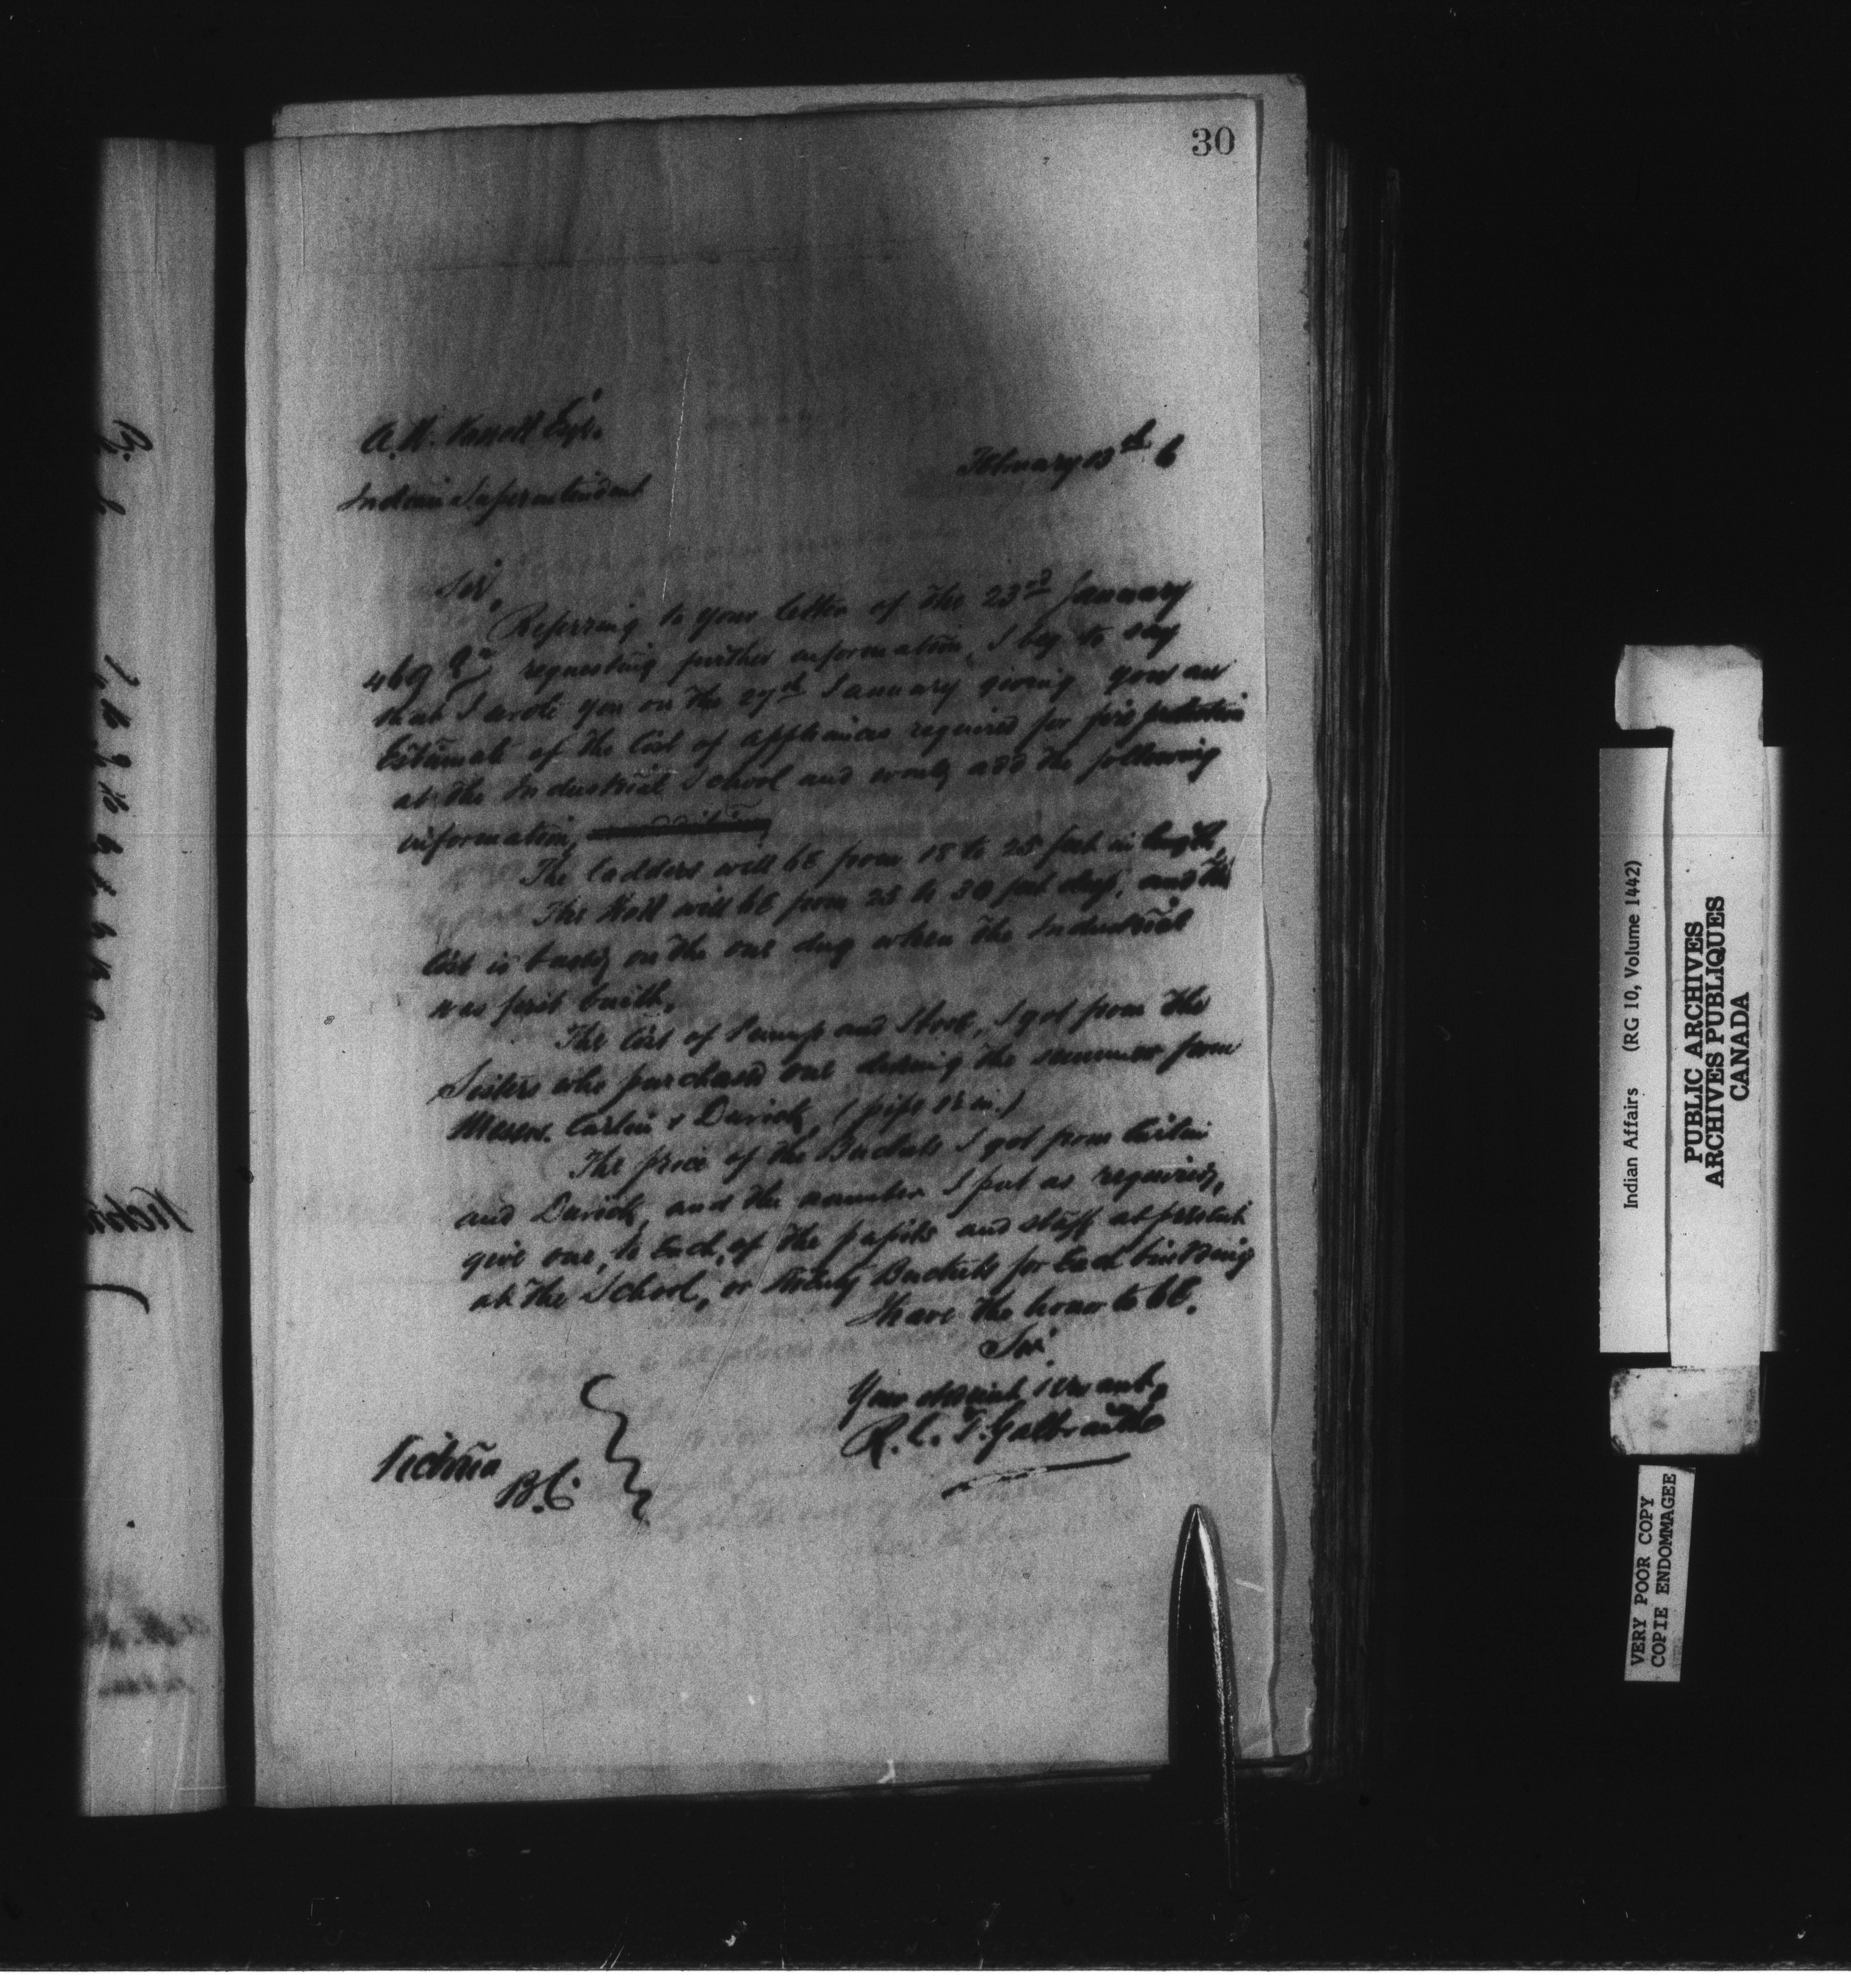 30
A. W. Vowell Esqr.
February 13th 6
Indian Superintendent
Sir,
Referring to your letter of the 23rd January
requesting further information, I beg to say
that I wrote you on the 27th January giving you an
Estimate of the Cost of appliances required for fire protection
at the Industrial School and would add the following
information,
The ladders will be from 18 to 25 feet in length,
The Well will be from 25 to 30 feet deep, and the
Cost is based on the one dug when the Industrial
was first built,
The Cost of Pump and Stock, I got from the
Sisters who purchased one during the summer from
Messrs. Carlin & Durick, (pipe in.)
The price of the Buckets I got from Carlin
and Durick, and the number I put as required,
give one, to Each, of the pupils and staff at present
at the School, or twenty Buckets for Each building
I have the honor to be,
Sir
Your obedient servant,
R. L. T. Galbraith
Victoria
B.C.
Indian Affairs (RG 10, Volume 1442)
PUBLIC ARCHIVES
ARCHIVES PUBLIQUES
CANADA
VERY POOR COPY
COPIE ENDOMMAGEE